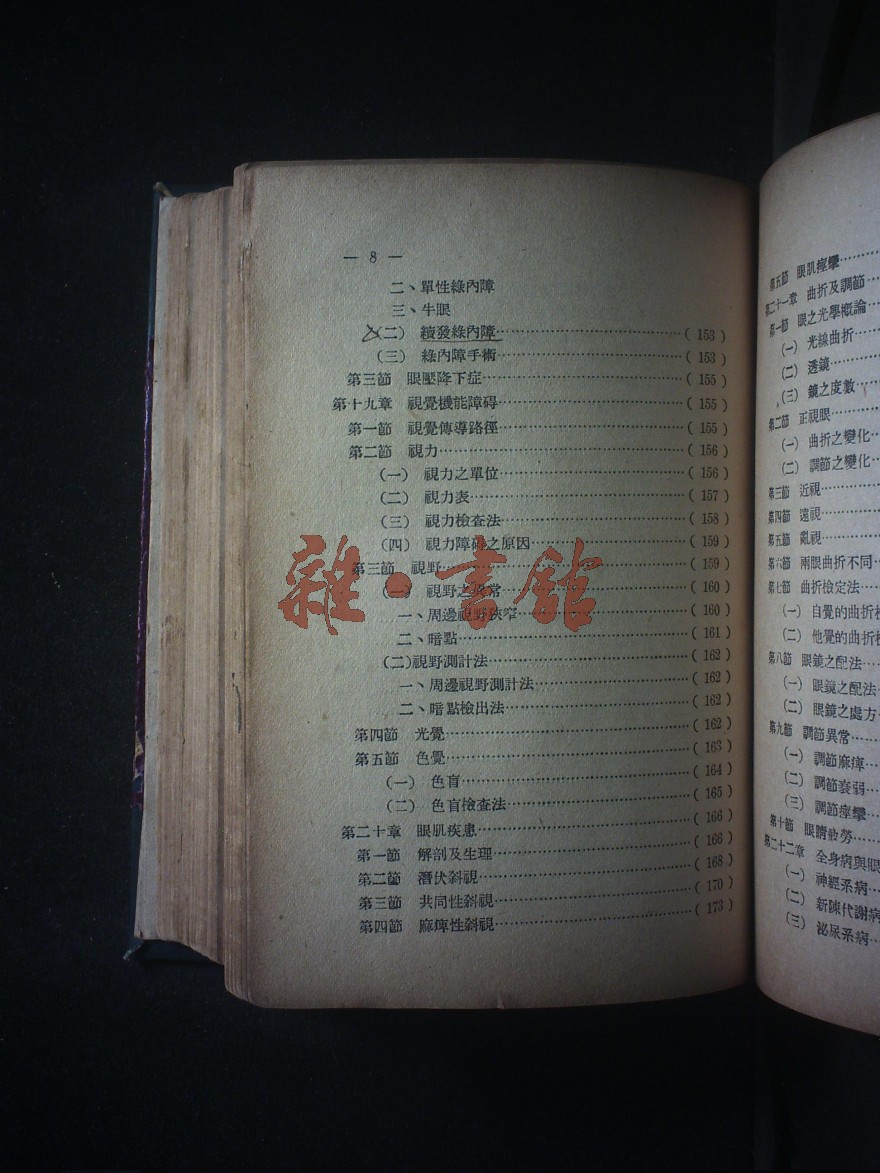 — 8 —
二、單性綠內障
三、牛眼
(二) 續發綠內障…………(153)
(三) 綠內障手術…………(153)
第三節 眼壓降下症…………(155)
第十九章 視覺機能障碍…………(155)
第一節 視覺傳導路徑…………(155)
第二節 視力…………(156)
(一) 視力之單位…………(156)
(二) 視力表…………(157)
(三) 視力檢查法…………(158)
(四) 視力障碍之原因…………(159)
第三節 視野…………(159)
(一) 視野之異常…………(160)
一、周邊視野狹窄…………(160)
二、暗點…………(161)
(二)視野測計法…………(162)
一、周邊視野測計法…………(162)
二、暗點檢出法…………(162)
第四節 光覺…………(162)
第五節 色覺…………(163)
(一) 色盲…………(164)
(二) 色盲檢查法…………(165)
第二十章 眼肌疾患…………(166)
第一節 解剖及生理…………(166)
第二節 潛伏斜視…………(168)
第三節 共同性斜視…………(170)
第四節 麻痺性斜視…………(173)
雜·書館
第五節 眼肌痙攣…………
第二十一章 曲折及調節…………
第一節 眼之光學概論…………
(一) 光線曲折…………
(二) 透鏡…………
(三) 鏡之度數…………
第二節 正視眼…………
(一) 曲折之變化…………
(二) 調節之變化…………
第三節 近視…………
第四節 遠視…………
第五節 亂視…………
第六節 兩眼曲折不同…………
第七節 曲折檢定法…………
(一) 自覺的曲折
(二) 他覺的曲折
第八節 眼鏡之配法…………
(一) 眼鏡之配法…………
(二) 眼鏡之處方…………
第九節 調節異常…………
(一) 調節麻痺…………
(二) 調節衰弱…………
(三) 調節痙攣…………
第十節 眼睛疲勞…………
第二十二章 全身病與眼
(一) 神經系病…………
(二) 新陳代謝病
(三) 泌尿系病…………